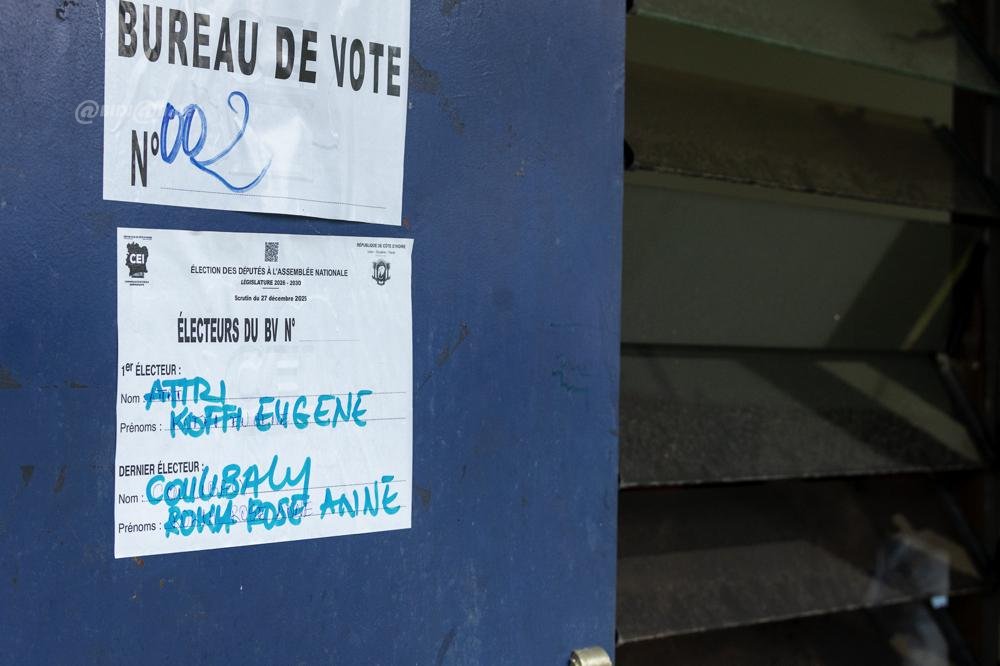 BUREAU DE VOTE
N° 002
CEI
RÉPUBLIQUE DE CÔTE D'IVOIRE
ÉLECTION DES DÉPUTÉS À L'ASSEMBLÉE NATIONALE
LÉGISLATURE 2026 - 2030
Scrutin du 27 décembre 2025
ÉLECTEURS DU BV N°
1er ÉLECTEUR :
Nom : ATTRI
Prénoms : KOFFI EUGENE
DERNIER ÉLECTEUR :
Nom : COULIBALY
Prénoms : ROKIA ROSE ANNE